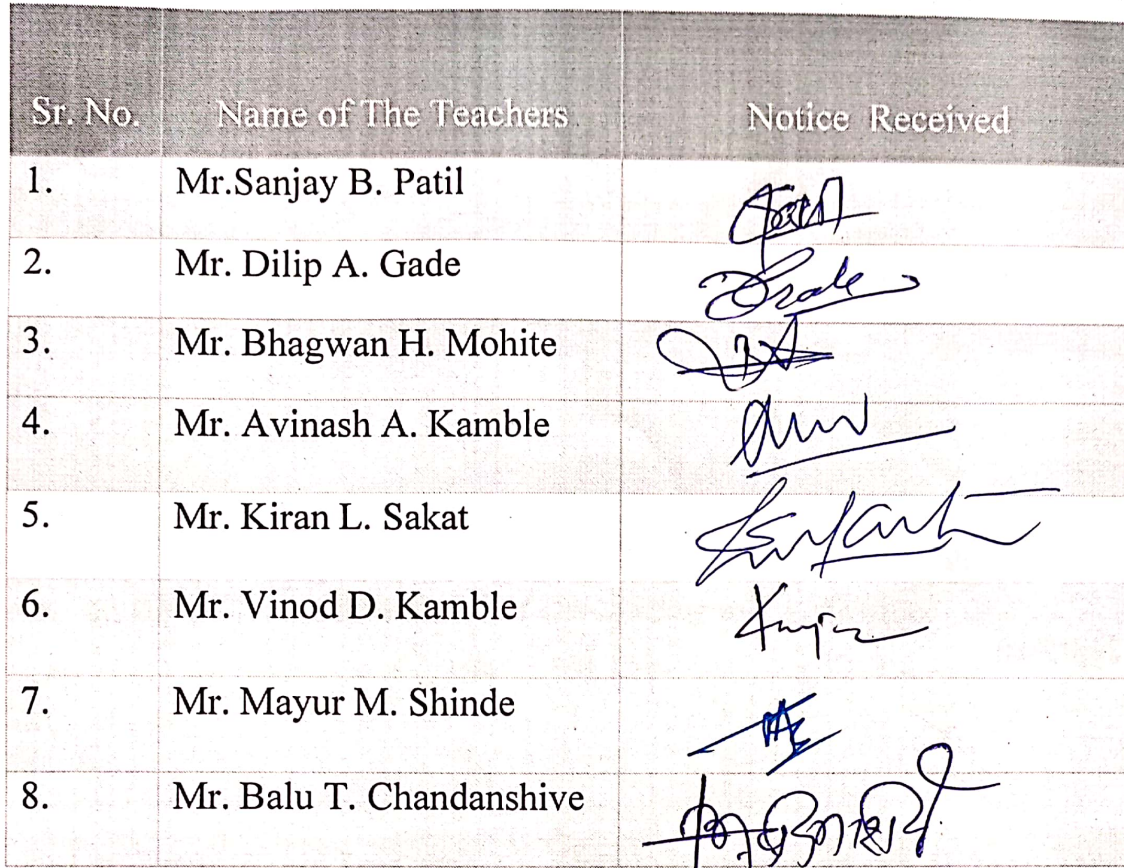 Sr. No. Name of The Teachers Notice Received
1. Mr.Sanjay B. Patil
2. Mr. Dilip A. Gade
3. Mr. Bhagwan H. Mohite
4. Mr. Avinash A. Kamble
5. Mr. Kiran L. Sakat
6. Mr. Vinod D. Kamble
7. Mr. Mayur M. Shinde
8. Mr. Balu T. Chandanshive